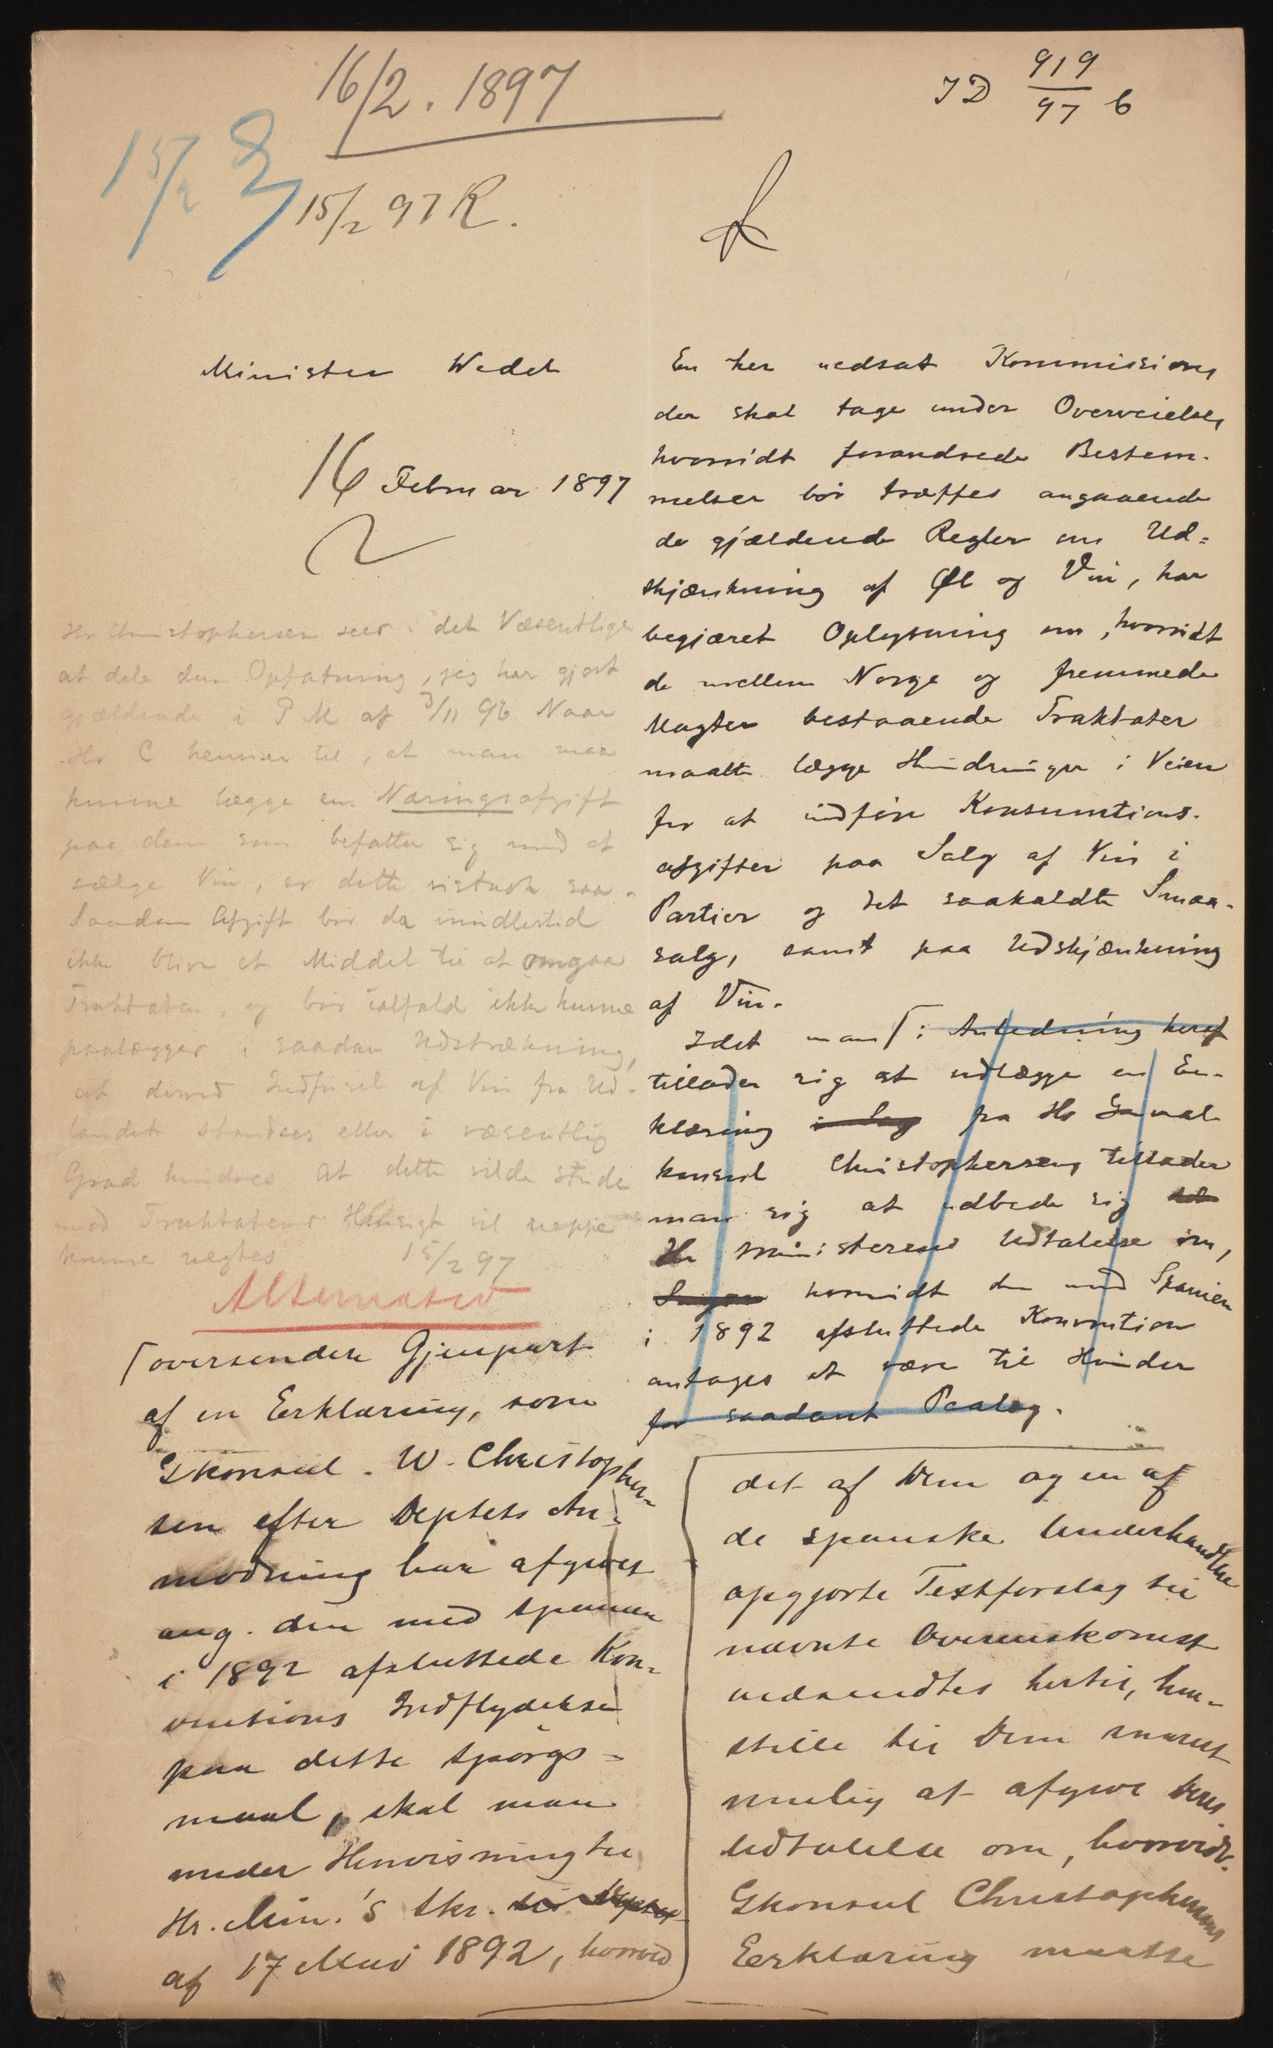 16/2. 1897
ID 919/97 b
15/2
15/2 97 R.
Minister Wedel
16 Februar 1897
En her nedsat Kommission,
der skal tage under Overveielse,
hvorvidt forandrede Bestem-
melser bør træffes angaaende
de gjældende Regler om Ud=
skjænkning af Øl og Vin, har
begjæret Oplysning om, hvorvidt
de mellem Norge og fremmede
Magter bestaaende Traktater
maatte lægge Hindringer i Veien
for at indføre Konsumtions-
afgifter paa Salg af Vin i
Partier og det saakaldte Smaa-
salg, samt paa Udskjænkning
af Vin.
Idet man ⌈i Anledning heraf
tillader sig at vedlægge en Er-
klæring i Sag fra Hr General-
konsul Christophersen, tillader
man sig at udbede sig
Hr Ministerens Udtalelse om,
hvorvidt den med Spanien
i 1892 afsluttede Konvention
antages at være til Hinder
for saadant Paalæg.
Hr Christophersen sees i det Væsentlige
at dele den Opfatning, jeg har gjort
gjældende i P M af 3/11 96 Naar
Hr C henviser til, at man maa
kunne lægge en Næringsafgift
paa dem som befatter sig med at
sælge Vin, er dette vistnok saa.
Saadan Afgift bør da imidlertid
ikke blive et Middel til at omgaa
Traktaten, og bør ialfald ikke kunne
paalægges i saadan Udstrækning,
at derved Indførsel af Vin fra Ud-
landet standses eller i væsentlig
Grad hindres At dette vilde stride
mod Traktatens Hensigt vil neppe
kunne nægtes 15/2 97
Alternativ
⌈oversender Gjenpart
af en Erklæring, som
Gkonsul. W. Christopher-
sen efter Deptets An-
modning har afgivet
ang. den med Spanien
i 1892 afsluttede Kon-
ventions Indflydelse
paa dette Spørgs=
maal, skal man
under Henvisning til
Hr. Min.'s Skr. til Deptet
af 17 Mai 1892, hvorved
det af Dem og en af
de spanske Underhandlere
opgjorte Textforslag til
nævnte Overenskomst
nedsendtes hertil, hen-
stille til Dem snarest
mulig at afgive Deres
Udtalelse om, hvorvidt
Gkonsul Christophersens
Erklæring maatte